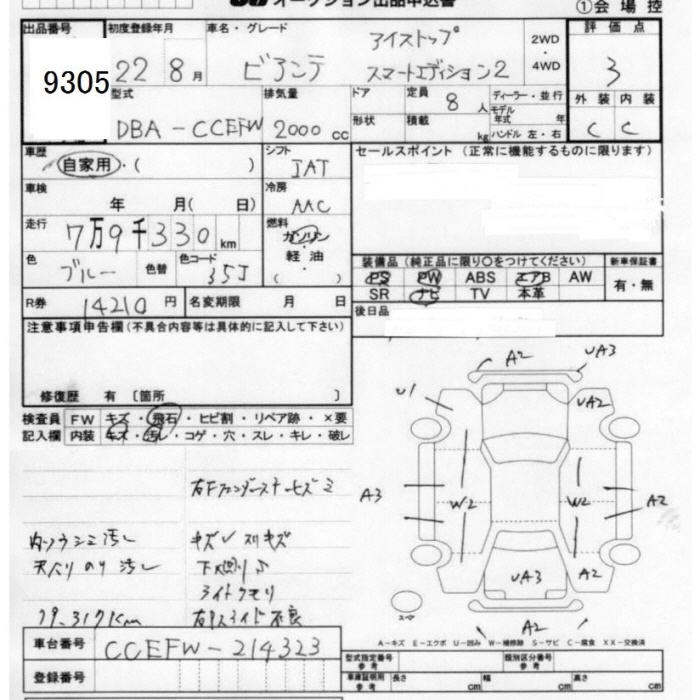 オークション出品申込書
①会場控
出品番号 初度登録年月 車名・グレード アイストップ 2WD・4WD 評価点
9305 22 8月 ビアンテ スマートエディション2 3
型式 排気量 ドア 定員 8人 ディーラー・並行 外装 内装
DBA-CCEFW 2000cc 形状 積載 kg モデル年式 年 ハンドル 左・右 C C
車歴 自家用・( ) シフト IAT セールスポイント (正常に機能するものに限ります)
車検 年 月( 日) 冷房 AAC
走行 7万9千330km 燃料 ガソリン・軽油
色 ブルー 色替 色コード 35J
装備品 (純正品に限り○をつけてください) 新車保証書
PS PW ABS エアB AW 有・無
SR ナビ TV 本革
R券 14210円 名変期限 月 日 後日品
注意事項申告欄(不具合内容等は具体的に記入して下さい)
修復歴 有 〔箇所 〕
検査員 FW キズ・飛石・ヒビ割・リペア跡・×要
記入欄 内装 キズ・汚レ・コゲ・穴・スレ・キレ・破レ
A2 UA3
U1 UA2
A3 W2 W2 A2
UA3 A2
スペアー
A2
キズ
天ハリ のり 汚し 下廻り
ライトクモリ
79.317km 不良
A-キズ E-エクボ U-凹み W-補修跡 S-サビ C-腐食 XX-交換済
車台番号 CCEFW-214323
登録番号
型式指定番号参考 類別区分番号参考
車庫証明用参考 長さ cm 幅 cm 高さ cm